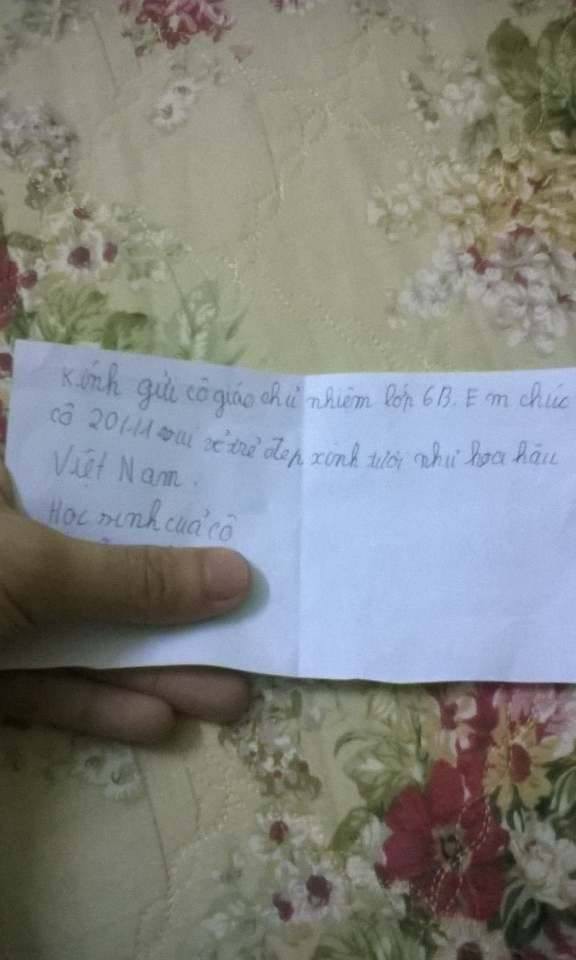 Kính gửi cô giáo chủ nhiệm lớp 6B. Em chúc
cô 20-11 vui vẻ trẻ đẹp xinh tươi như hoa hậu
Việt Nam.
Học sinh của cô